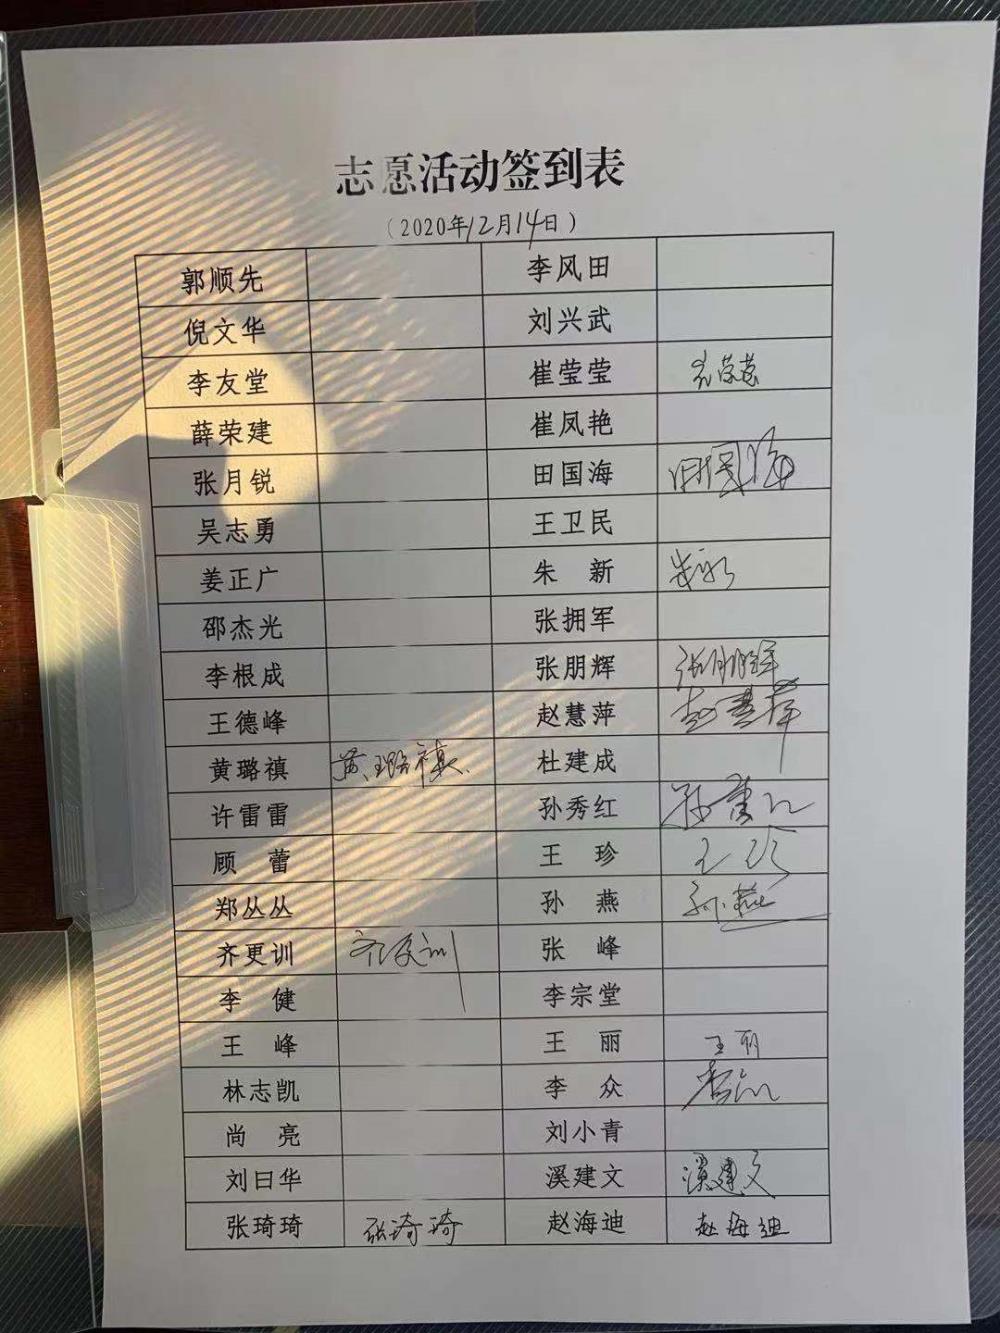 志愿活动签到表
（2020年12月14日）
郭顺先 李风田
倪文华 刘兴武
李友堂 崔莹莹 崔莹莹
薛荣建 崔凤艳
张月锐 田国海 田国海
吴志勇 王卫民
姜正广 朱 新 朱新
邵杰光 张拥军
李根成 张朋辉 张朋辉
王德峰 赵慧萍 赵慧萍
黄璐禛 黄璐禛 杜建成
许雷雷 孙秀红 孙秀红
顾 蕾 王 珍 王珍
郑丛丛 孙 燕 孙燕
齐更训 齐更训 张 峰
李 健 李宗堂
王 峰 王 丽 王丽
林志凯 李 众 李众
尚 亮 刘小青
刘曰华 溪建文 溪建文
张琦琦 张琦琦 赵海迪 赵海迪